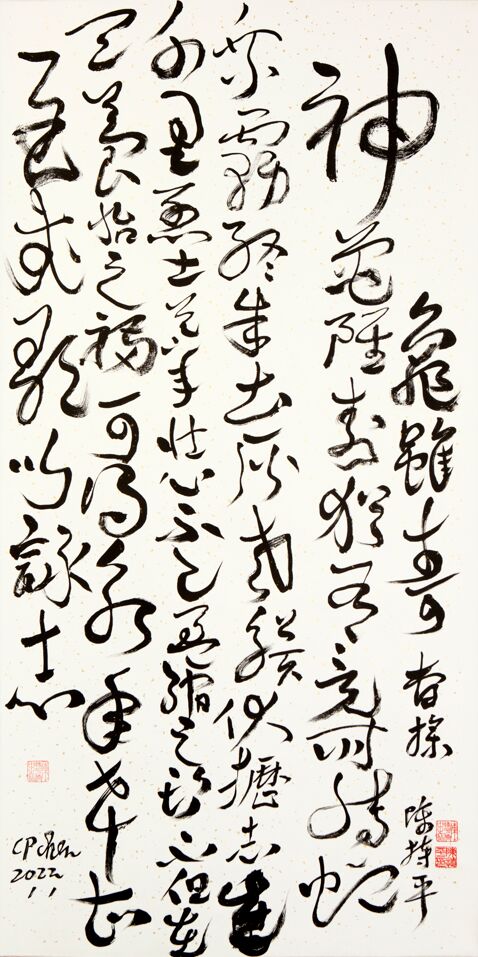 龜雖壽 曹操 陳持平
神龜雖壽猶有竟時騰蛇
乘霧終成土灰老驥伏櫪志在
千里烈士暮年壯心不已盈縮之期不但在
天養怡之福可得永年幸甚
至哉歌以詠志
CPchen
2022
1.1